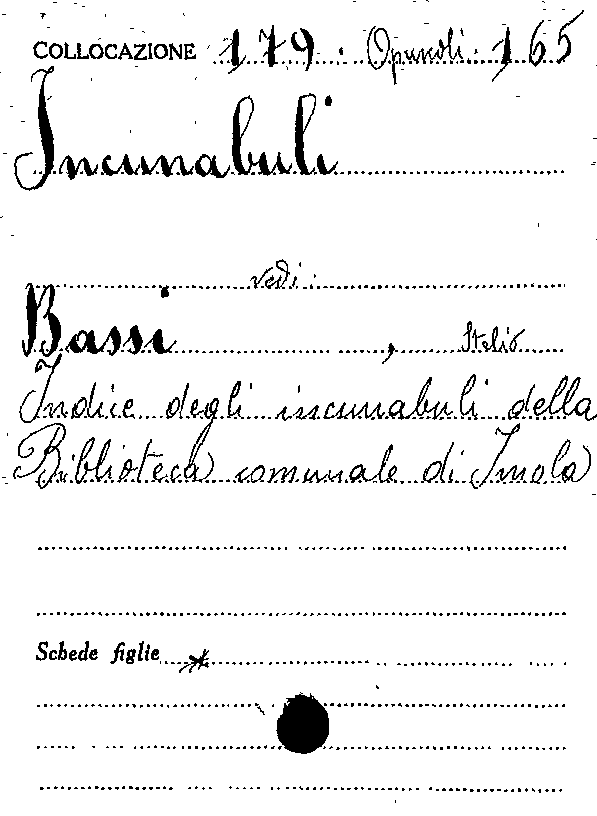 COLLOCAZIONE 179. Opuscoli. 165
Incunabuli
vedi:
Bassi, Stelio
Indice degli incunabuli della
Biblioteca comunale di Imola
Schede figlie *